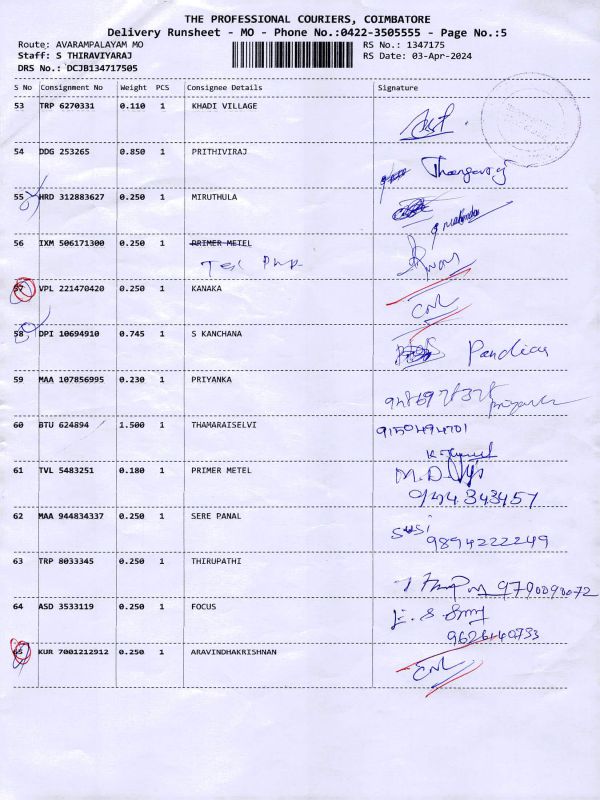 THE PROFESSIONAL COURIERS, COIMBATORE
Delivery Runsheet - MO - Phone No.:0422-3505555 - Page No.:5
Route: AVARAMPALAYAM MO RS No.: 1347175
Staff: S THIRAVIYARAJ RS Date: 03-Apr-2024
DRS No.: DCJB134717505
S No Consignment No Weight PCS Consignee Details Signature
53 TRP 6270331 0.110 1 KHADI VILLAGE
54 DDG 253265 0.850 1 PRITHIVIRAJ
55 HRD 312883627 0.250 1 MIRUTHULA
56 IXM 506171300 0.250 1 PRIMER METEL
57 VPL 221470420 0.250 1 KANAKA
CNL
58 DPI 10694910 0.745 1 S KANCHANA
Pandian
59 MAA 107856995 0.230 1 PRIYANKA
Priyanka
60 BTU 624894 1.500 1 THAMARAISELVI
9150494701
61 TVL 5483251 0.180 1 PRIMER METEL
M.D
944343457
62 MAA 944834337 0.250 1 SERE PANAL
Susi
9894222249
63 TRP 8033345 0.250 1 THIRUPATHI
9790090072
64 ASD 3533119 0.250 1 FOCUS
9626140733
65 KUR 7001212912 0.250 1 ARAVINDHAKRISHNAN
CNL